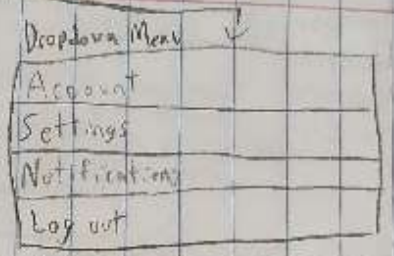 Dropdown Menu ↓
Account
Settings
Notifications
Log out